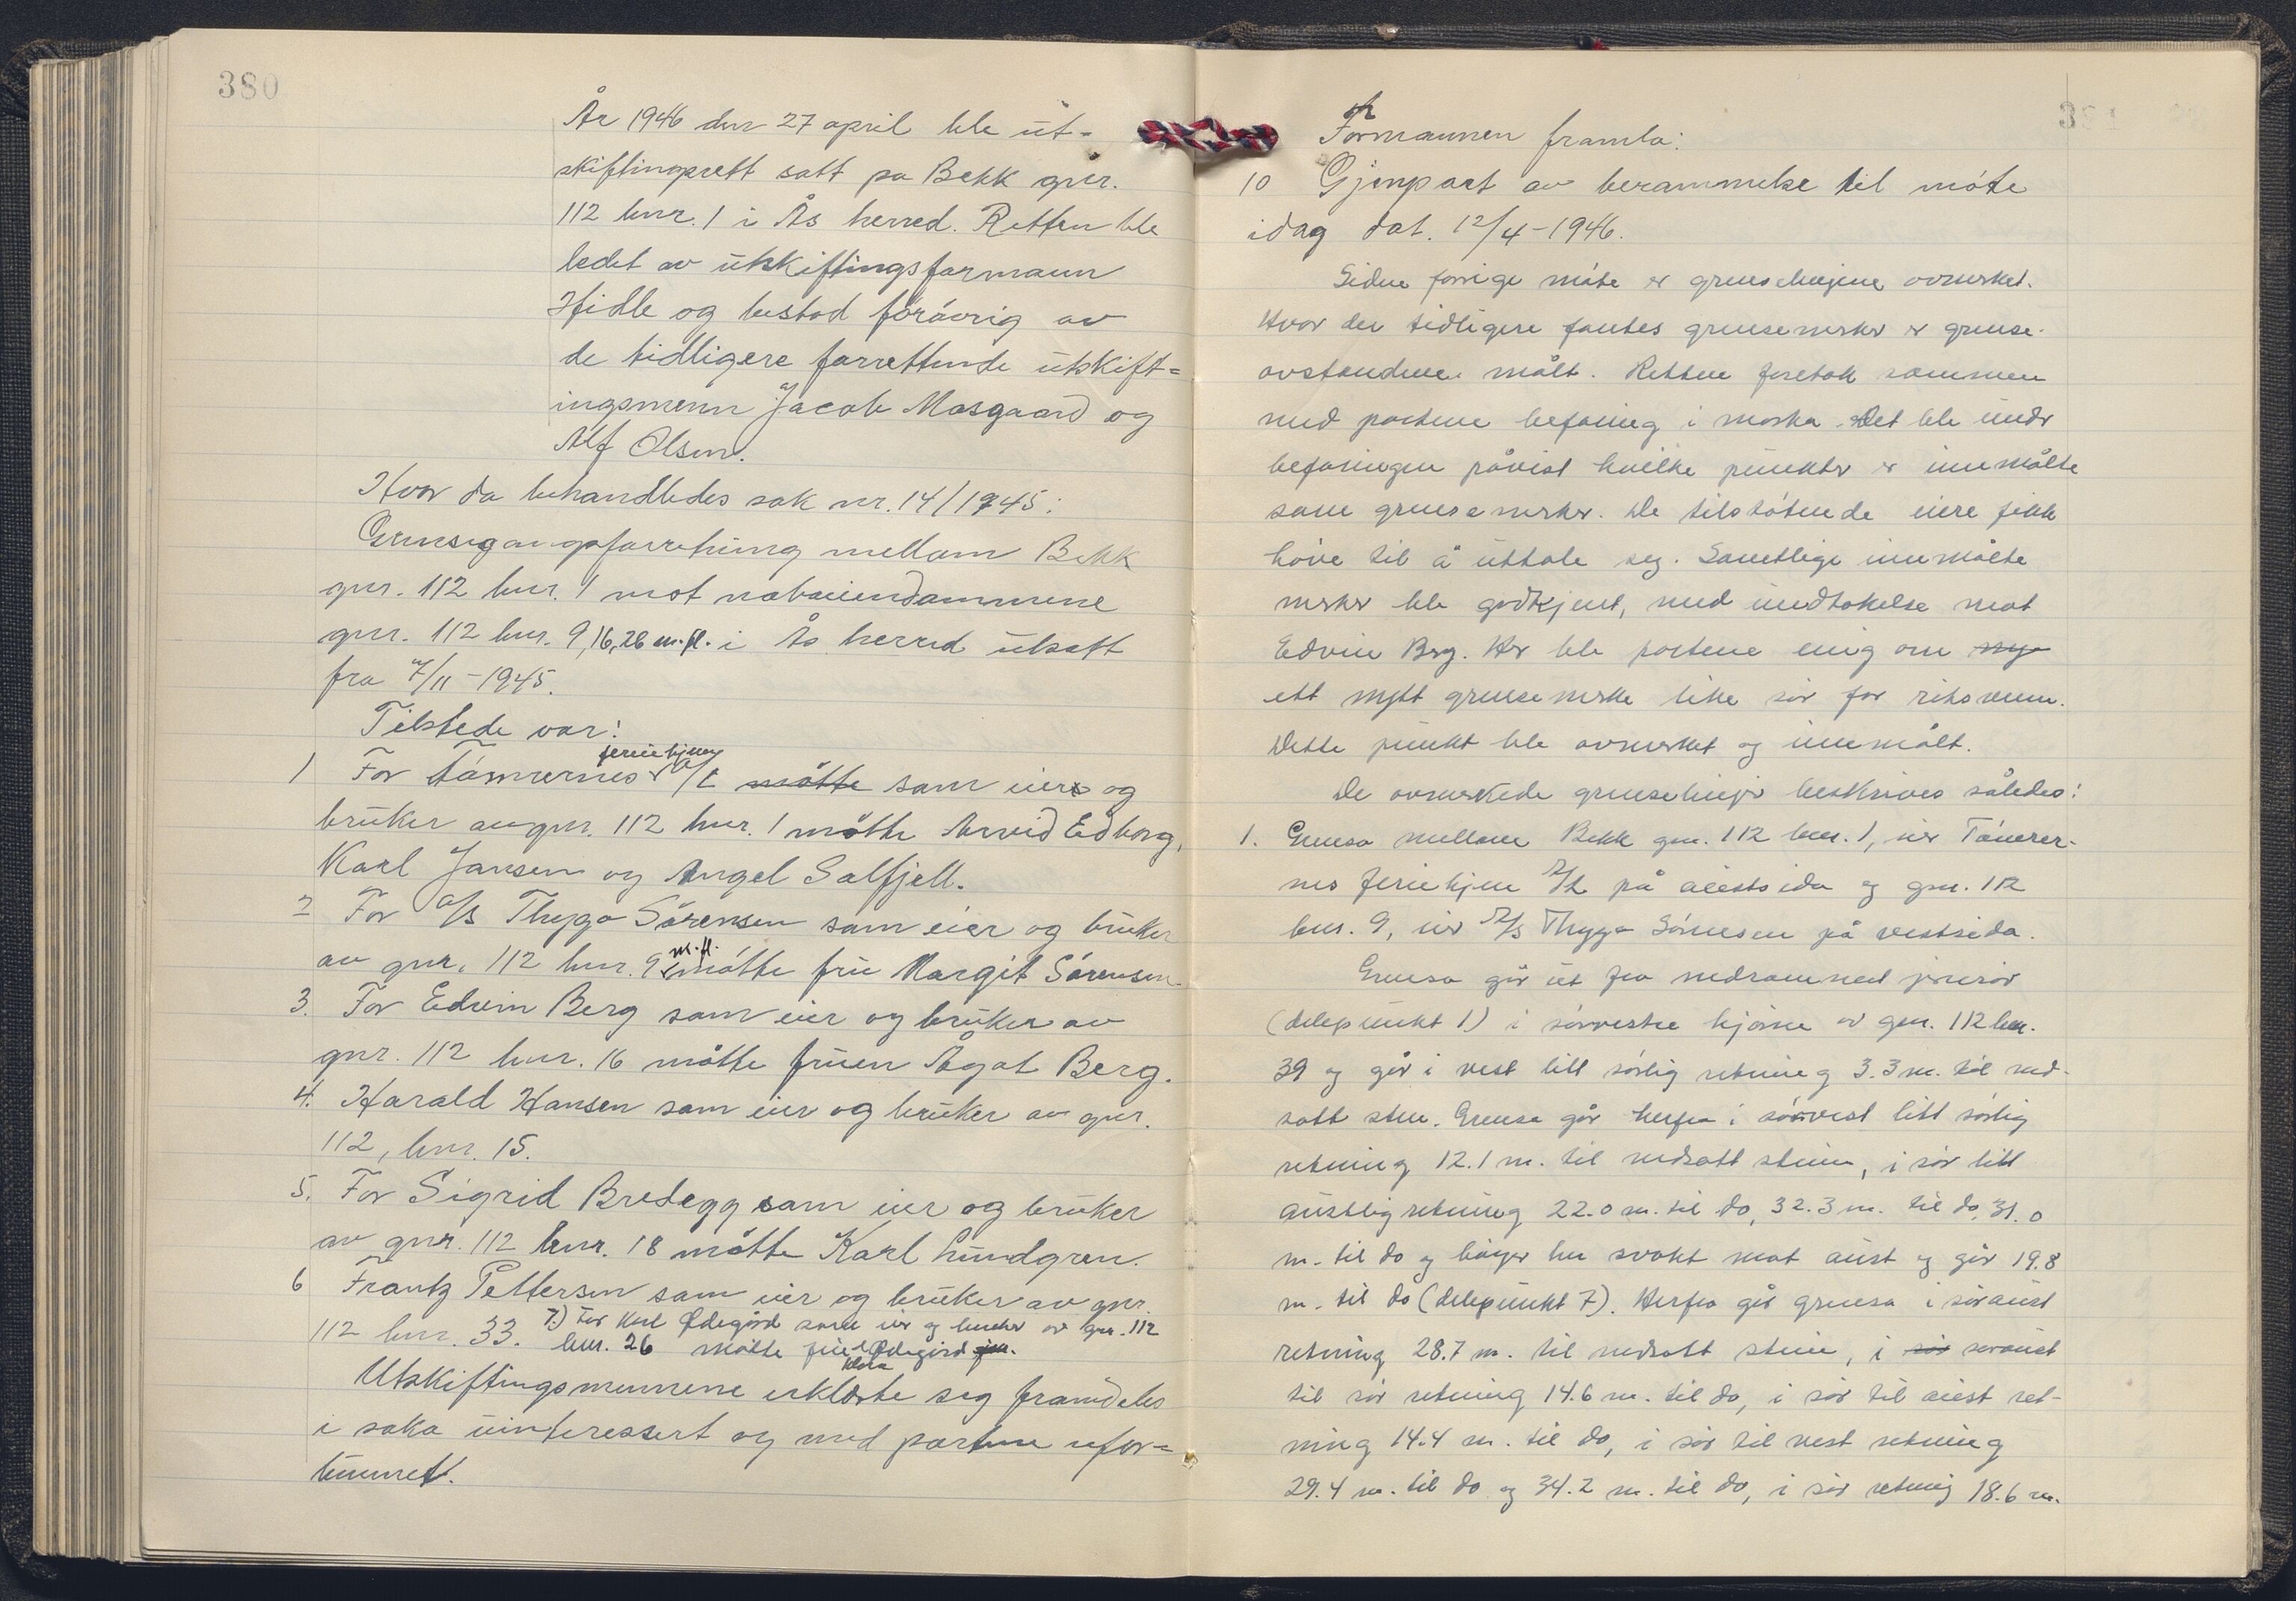 380
År 1946 den 27 april ble ut-
skiftingsrett satt på Bekk gnr.
112 bnr. 1 i Ås herred. Retten ble
ledet av utskiftingsformann
Hidle og bestod forøvrig av
de tidligere forrettende utskift=
ingsmenn Jacob Mosgaard og
Alf Olsen.
Hvor da behandledes sak nr. 14/1945:
Grensegangsforretning mellom Bekk
gnr. 112 bnr. 1 mot naboeiendommene
gnr. 112 bnr. 9, 16, 26 m.fl. i Ås herred utsatt
fra 7/11-1945.
Tilstede var:
feriehjem
1 For Tømrernes a/l møtte som eier og
bruker av gnr. 112 bnr. 1 møtte Arvid Edborg,
Karl Jansen og Angel Salfjell.
2 For a/s Thygo Sørensen som eier og bruker
m.fl.
av gnr. 112 bnr. 9 møtte fru Margit Sørensen.
3. For Edvin Berg som eier og bruker av
gnr. 112 bnr. 16 møtte fruen Ågot Berg.
4. Harald Hansen som eier og bruker av gnr.
112, bnr. 15.
5. For Sigrid Bredegg som eier og bruker
av gnr. 112 bnr. 18 møtte Karl Lundgren.
6 Frantz Pettersen som eier og bruker av gnr.
112 bnr. 33. 7.) For Karl Ødegård som eier og bruker av gnr. 112
bnr. 26 møtte frue Ødegård
Klara
Utskiftingsmennene erklærte seg framdeles
i saka uinteressert og med partene ufor=
bunnet.
381
Formannen framla:
10 Gjenpart av berammelse til møte
idag dat. 12/4-1946.
Siden forrige møte er grenselinjene avmerket.
Hvor der tidligere fantes grensemerker er grense-
avstandene målt. Retten foretok sammen
med partene befaring i marka. Det ble under
befaringen påvist hvilke punkter er innmålte
som grensemerker. De tilstøtende eiere fikk
høve til å uttale seg. Samtlige innmålte
merker ble godkjent, med undtakelse mot
Edvin Berg. Her ble partene enig om ny
ett nytt grensemerke like sør for riksveien.
Dette punkt ble avmerket og innmålt.
De avmerkede grenselinjer beskrives således:
1. Grensa mellom Bekk gnr. 112 bnr. 1, eier Tømrer-
nes feriehjem A/L på austsida og gnr. 112
bnr. 9, eier A/S Thygo Sørensen på vestsida.
Grensa går ut fra nedrammed jernrør
(delepunkt 1) i sørvestre hjørne av gnr. 112 bnr.
39 og går i vest litt sørlig retning 3.3 m. til ned-
satt sten. Grensa går herfra i sørvest litt sørlig
retning 12.1 m. til nedsatt stein, i sør litt
austlig retning 22.0 m. til do, 32.3 m. til do, 31.0
m. til do og bøyer her svakt mot aust og går 19.8
m. til do (delepunkt 7). Herfra går grensa i søraust
retning 28.7 m. til nedsatt stein, i sør søraust
til sør retning 14.6 m. til do, i sør til aust ret-
ning 14.4 m. til do, i sør til vest retning
29.4 m. til do og 34.2 m. til do, i sør retning 18.6 m.